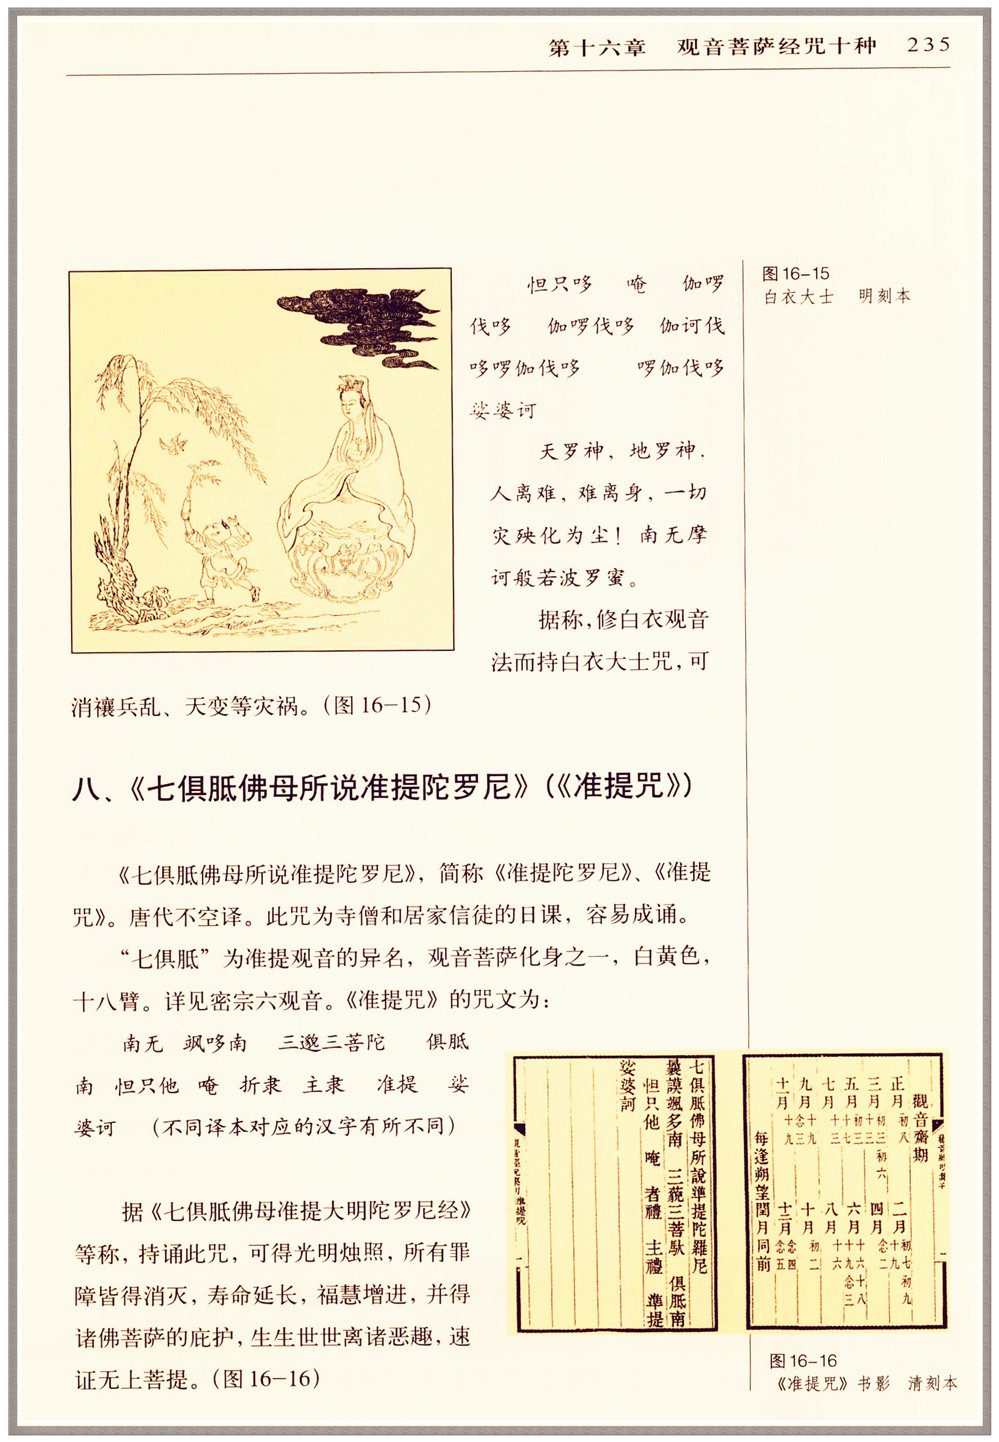 第十六章　观音菩萨经咒十种　235
怛只哆　唵　伽啰
伐哆　伽啰伐哆　伽诃伐
哆啰伽伐哆　啰伽伐哆
娑婆诃
天罗神，地罗神．
人离难，难离身，一切
灾殃化为尘！南无摩
诃般若波罗蜜。
据称，修白衣观音
法而持白衣大士咒，可
消禳兵乱、天变等灾祸。（图16–15）
图16–15
白衣大士　明刻本
八、《七俱胝佛母所说准提陀罗尼》（《准提咒》）
《七俱胝佛母所说准提陀罗尼》，简称《准提陀罗尼》、《准提
咒》。唐代不空译。此咒为寺僧和居家信徒的日课，容易成诵。
“七俱胝”为准提观音的异名，观音菩萨化身之一，白黄色，
十八臂。详见密宗六观音。《准提咒》的咒文为：
南无　飒哆南　三邈三菩陀　俱胝
南　怛只他　唵　折隶　主隶　准提　娑
婆诃　（不同译本对应的汉字有所不同）
据《七俱胝佛母准提大明陀罗尼经》
等称，持诵此咒，可得光明烛照，所有罪
障皆得消灭，寿命延长，福慧增进，并得
诸佛菩萨的庇护，生生世世离诸恶趣，速
证无上菩提。（图16–16）
觀音齋期
正月初八　二月初七初九十九
三月初三初六十三　四月念二
五月初三十七　六月十六十八十九念三
七月十三　八月十六
九月十九念三　十月初二
十一月十九　十二月念四念五
每逢朔望閏月同前
七俱胝佛母所說準提陀羅尼
曩謨颯多南　三藐三菩馱　俱胝南
怛只他　唵　者禮　主禮　準提
娑婆訶
图16–16
《准提咒》书影　清刻本